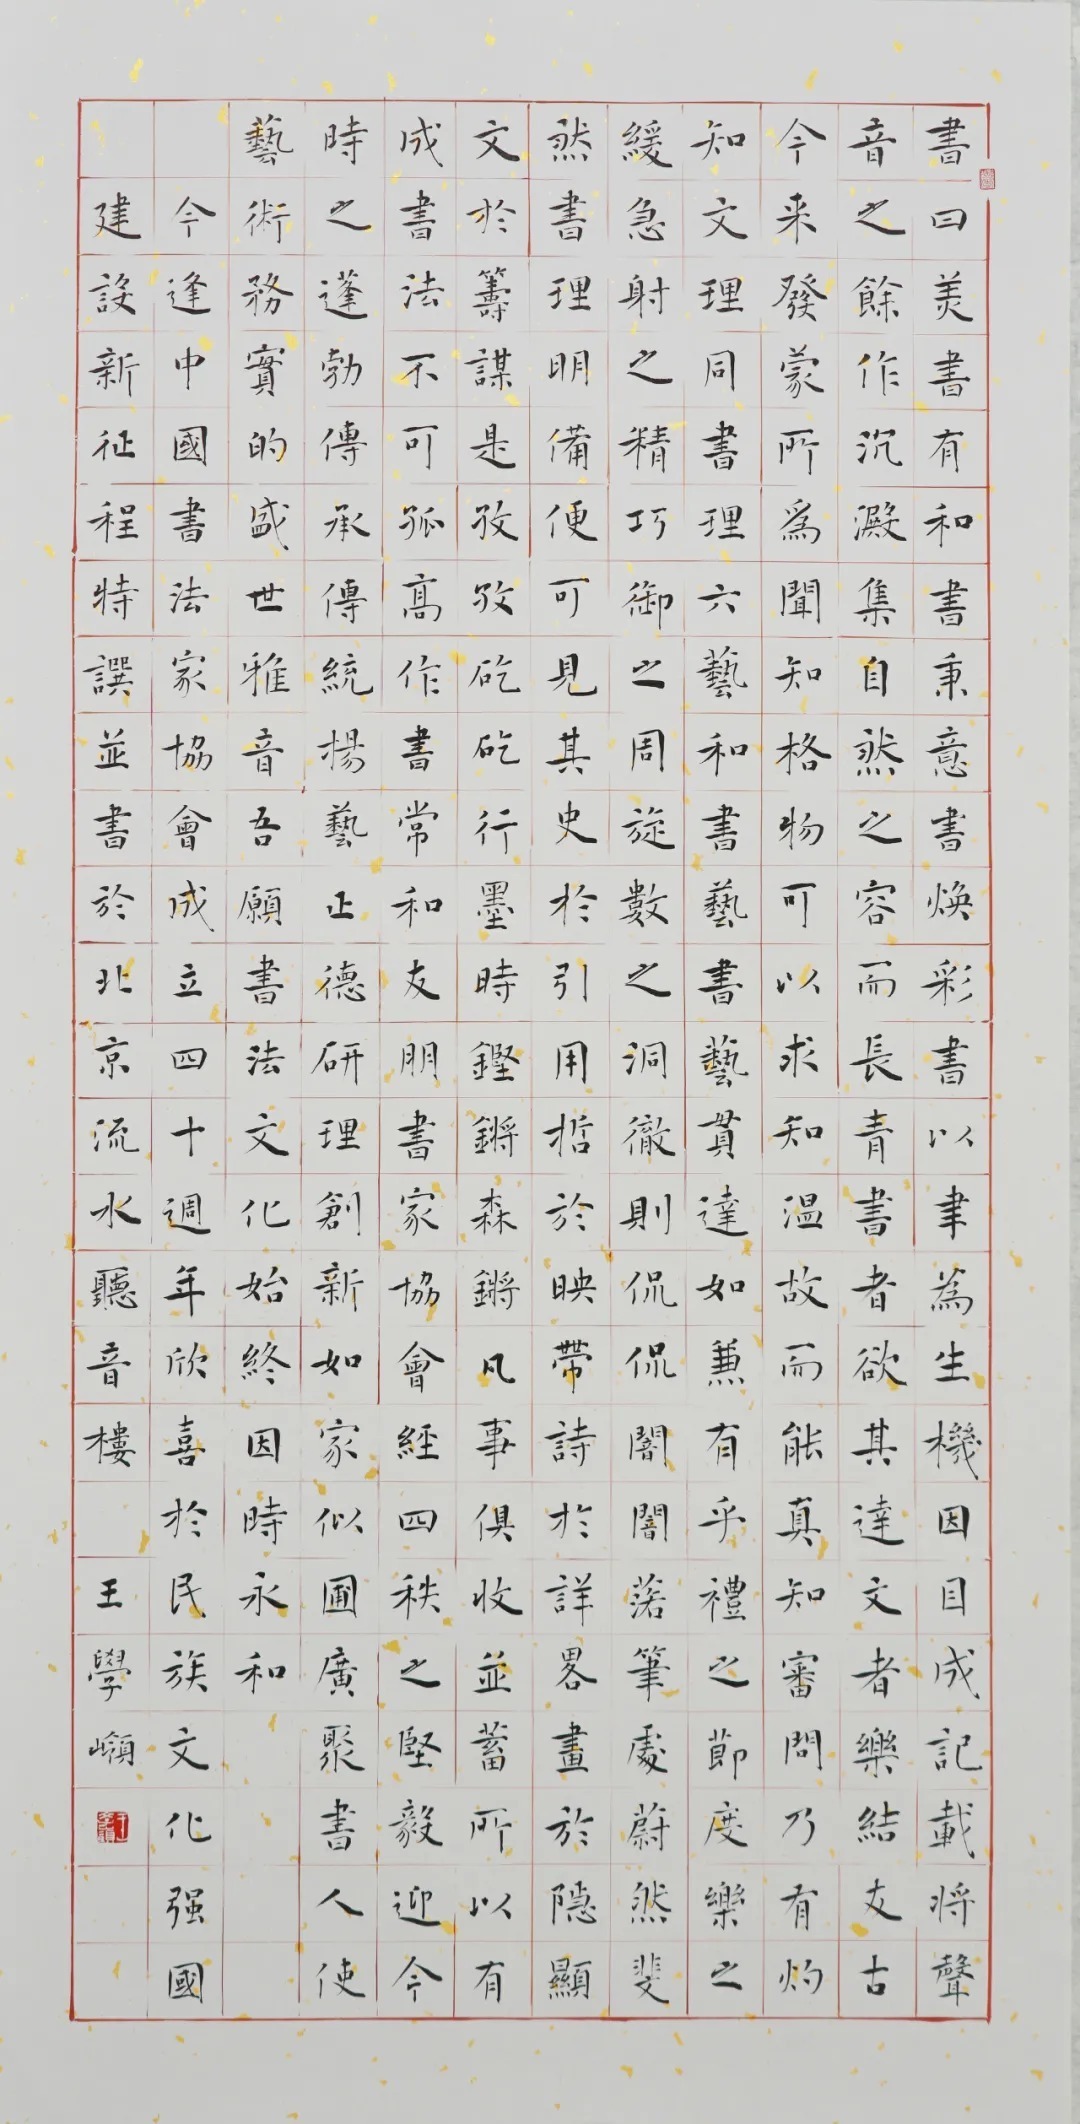 書曰美書有和書秉意書煥彩書以聿為生機因目成記載将聲
音之餘作沉澱集自然之容而長青書者欲其達文者樂結友古
今来發蒙所爲聞知格物可以求知温故而能真知審問乃有灼
知文理同書理六藝和書藝書藝貫達如兼有乎禮之節度樂之
緩急射之精巧御之周旋數之洞徹則侃侃闇闇落筆處蔚然斐
然書理明備便可見其史於引用哲於映帶詩於詳畧畫於隱顯
文於籌謀是孜孜矻矻行墨時鏗鏘森鏘凡事俱收並蓄所以有
成書法不可孤高作書常和友朋書家協會經四秩之堅毅迎今
時之蓬勃傳承傳統揚藝正德研理創新如家似圃廣聚書人使
藝術務實的盛世雅音吾願書法文化始終因時永和
今逢中國書法家協會成立四十週年欣喜於民族文化强國
建設新征程特譔並書於北京流水聽音樓 王學嶺